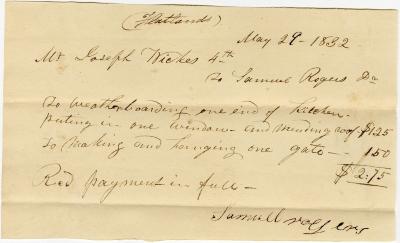 (Flatlands)
May 29 - 1832
Mr Joseph Wickes 4th
To Samuel Rogers Dr
To weatherboarding one end of kitchen
puting in one window and mending roof $1.25
To making and hanging one gate - 1.50
$2.75
Recd payment in full -
Samuell rogers